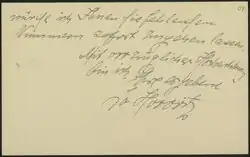 würde ich Ihnen die fehlenden
Nummern sofort zugehen lassen.
Mit vorzüglicher Hochachtung
bin ich Ihr ergebener